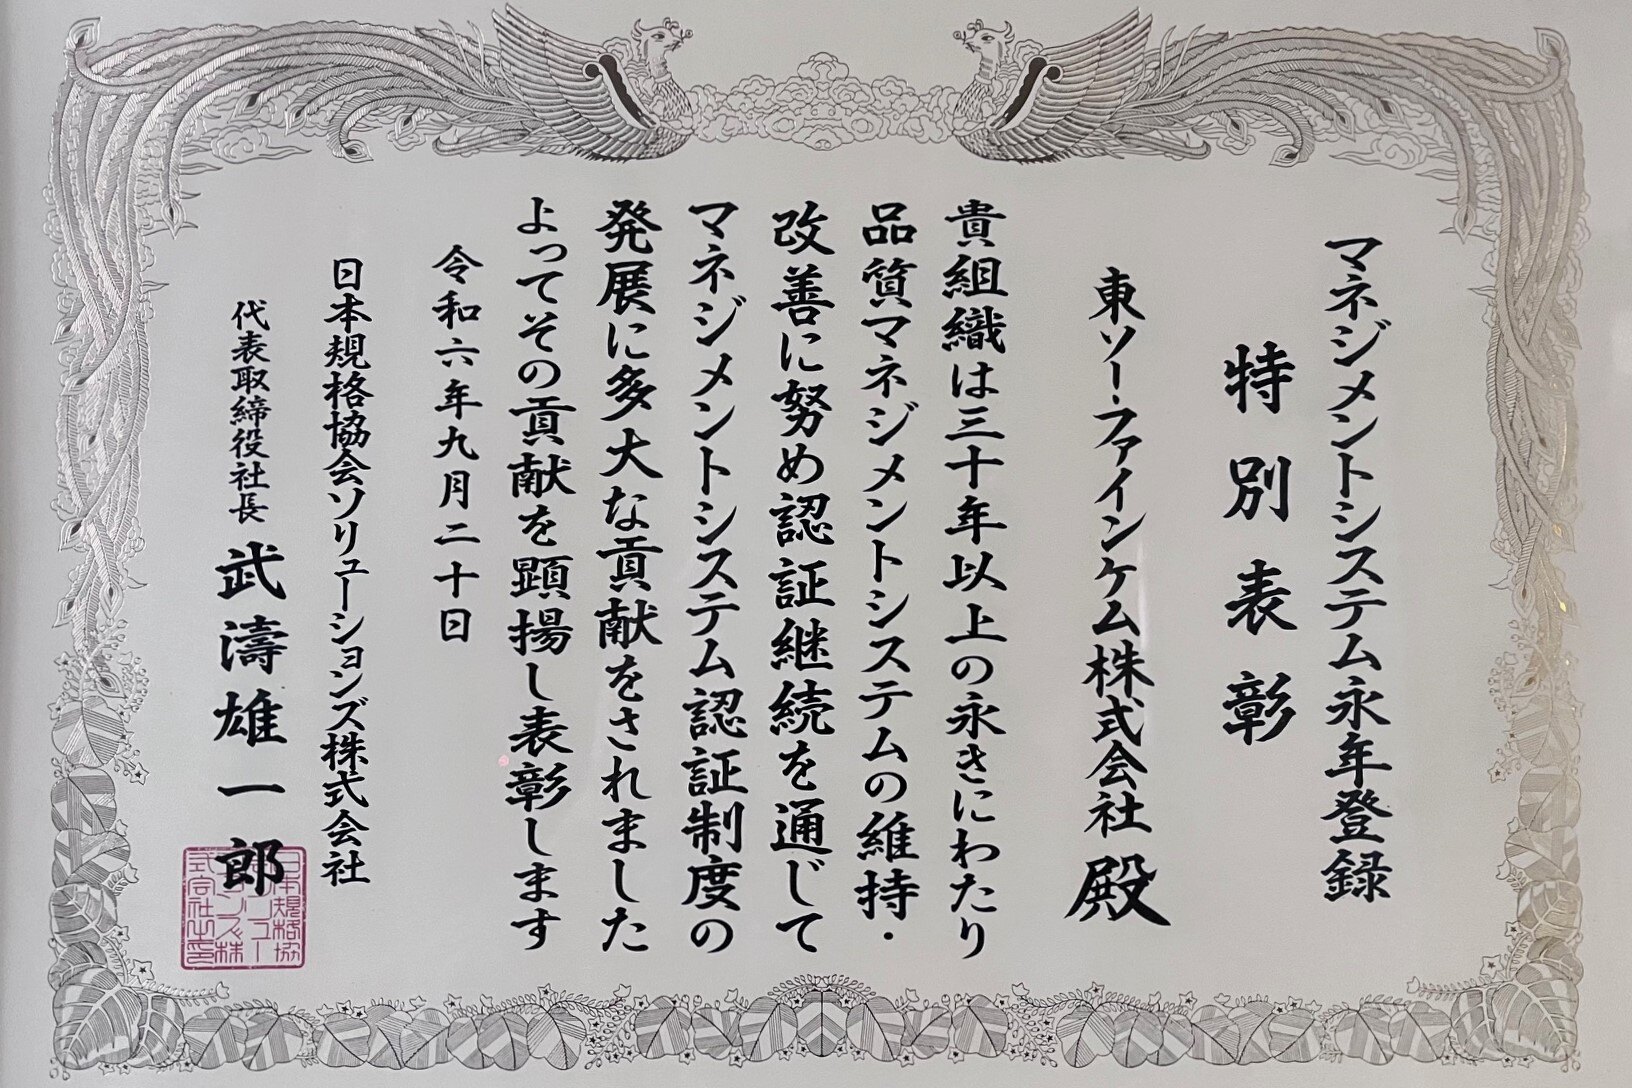 マネジメントシステム永年登録
特別表彰
東ソー・ファインケム株式会社 殿
貴組織は三十年以上の永きにわたり
品質マネジメントシステムの維持・
改善に努め認証継続を通じて
マネジメントシステム認証制度の
発展に多大な貢献をされました
よってその貢献を顕揚し表彰します
令和六年九月二十日
日本規格協会ソリューションズ株式会社
代表取締役社長 武濤雄一郎